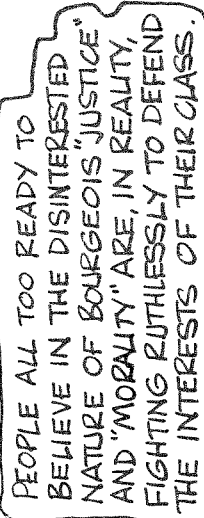 PEOPLE ALL TOO READY TO
BELIEVE IN THE DISINTERESTED
NATURE OF BOURGEOIS "JUSTICE"
AND "MORALITY" ARE, IN REALITY,
FIGHTING RUTHLESSLY TO DEFEND
THE INTERESTS OF THEIR CLASS.